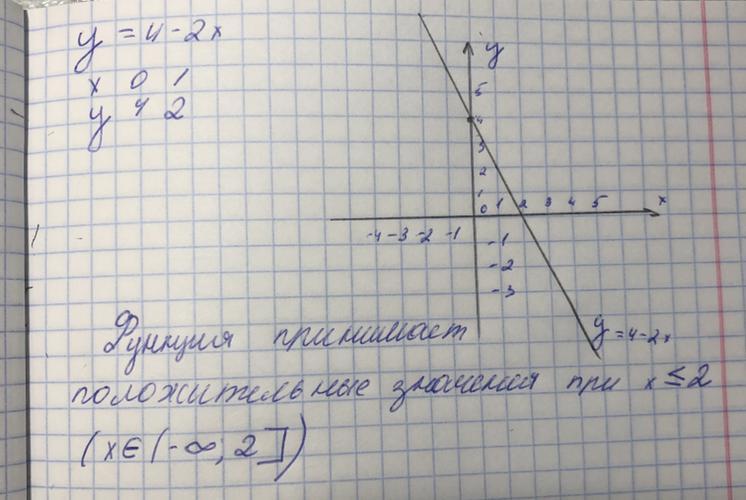 y = 4 - 2x
x 0 1
y 4 2
y
5
4
3
2
1
0 1 2 3 4 5 x
-4 -3 -2 -1
-1
-2
-3
y = 4 - 2x
Функция принимает
положительные значения при x ≤ 2
(x ∈ (-∞; 2])